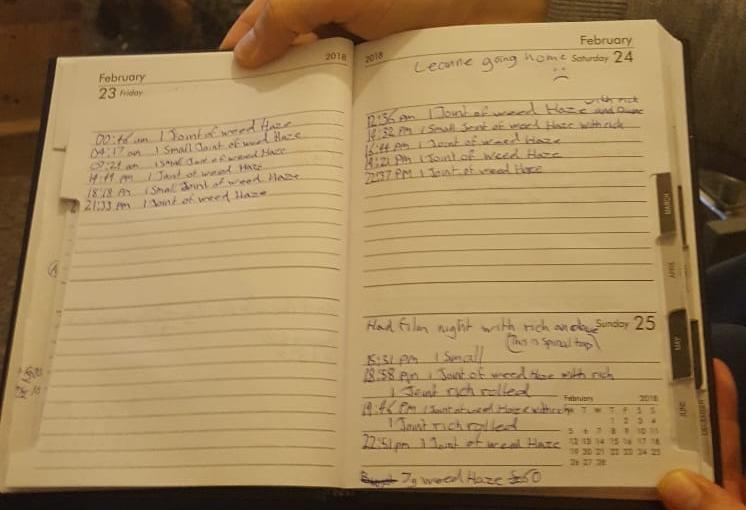 February
2018
23 Friday
00:46 am 1 Joint of weed Haze
04:17 am 1 Small Joint of weed Haze
09:21 am 1 Small Joint of weed Haze
14:44 pm 1 Joint of weed Haze
18:18 Pm 1 Small Joint of weed Haze
21:33 Pm 1 Joint of weed Haze
2018
February
Leanne going home Saturday 24
:(
with rich
12:36 pm 1 Joint of weed Haze and
14:32 PM 1 Small Joint of weed Haze with rich
16:44 Pm 1 Joint of weed Haze
19:21 Pm 1 Joint of weed Haze
22:37 PM 1 Joint of weed Haze
MARCH
APRIL
MAY
JUNE
DECEMBER
Had film night with rich and Sunday 25
(This is Spinal tap)
15:31 pm 1 Small
18:58 pm 1 Joint of weed Haze with rich
1 Joint rich rolled
19:46 PM 1 Joint of weed Haze with rich
1 Joint rich rolled
22:51 pm 1 Joint of weed Haze
7g weed Haze £50
February 2018
M T W T F S S
1 2 3 4
5 6 7 8 9 10 11
12 13 14 15 16 17 18
19 20 21 22 23 24 25
26 27 28